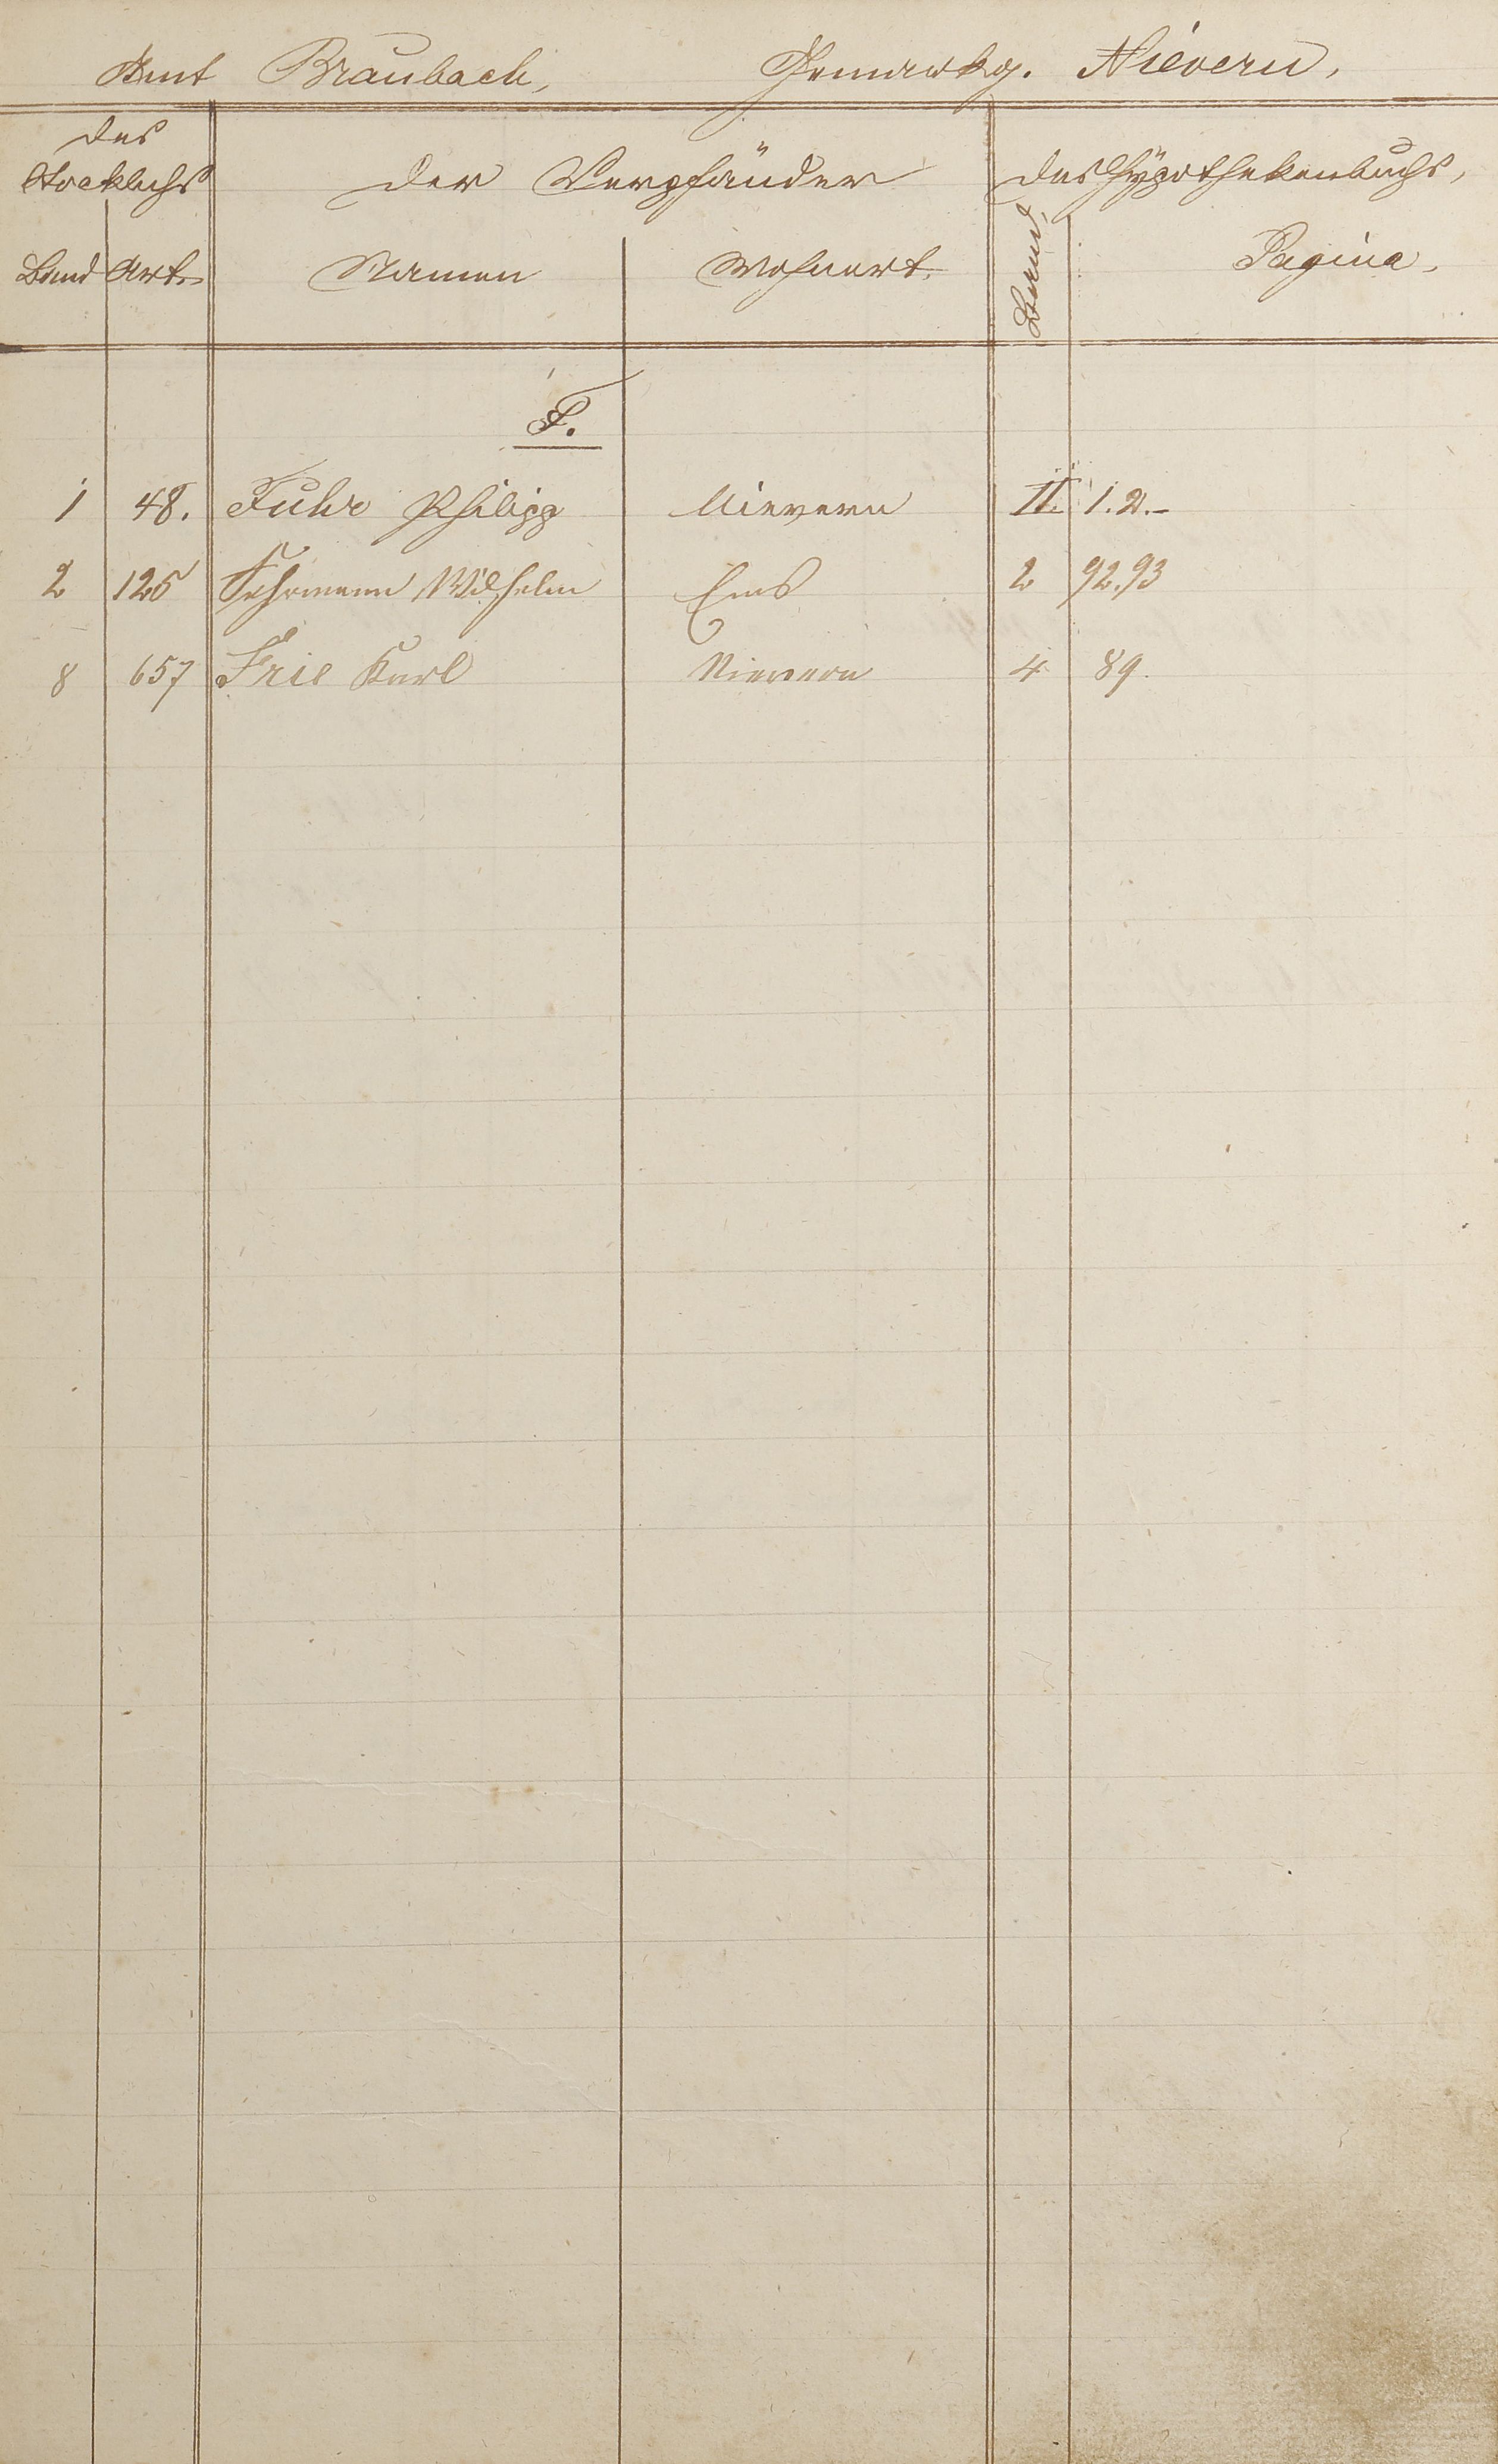 Amt Braubach, Gemarkg. Nievern,
des Stockbchs
der Verpfänder
des Hypothekenbuchs,
Band Art. Namen Wohnort. Band. Pagina.
F.
1 48. Fuhr Philipp Nievern II. 1.2.-
2 125 Wilhelm Ems 2 92.93
8 657 Frie Karl Nievern 4 89.